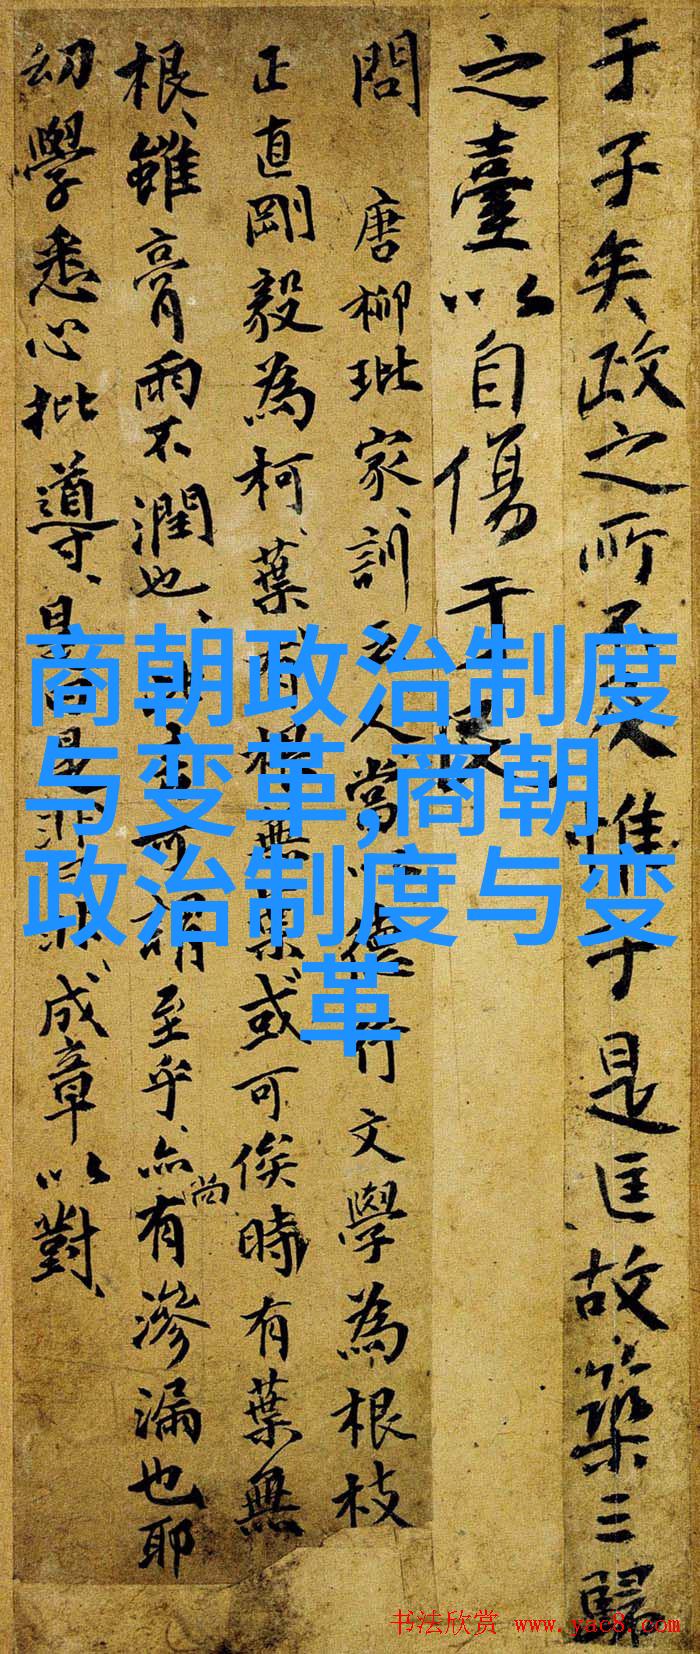 于子矣政之所及惟于是匡故築三歸
之臺以自傷于民
問 唐柳玭家訓云人當以德行文學為根枝
正直剛毅為柯葉有根無葉或可俟時有葉無
根雖膏雨不潤也
至乎亦尚有滲漏也耶
幼學悉心批導
成章以對
商朝政治制度
与变革,商朝
政治制度与变
革
书法欣赏 www.yac8.com